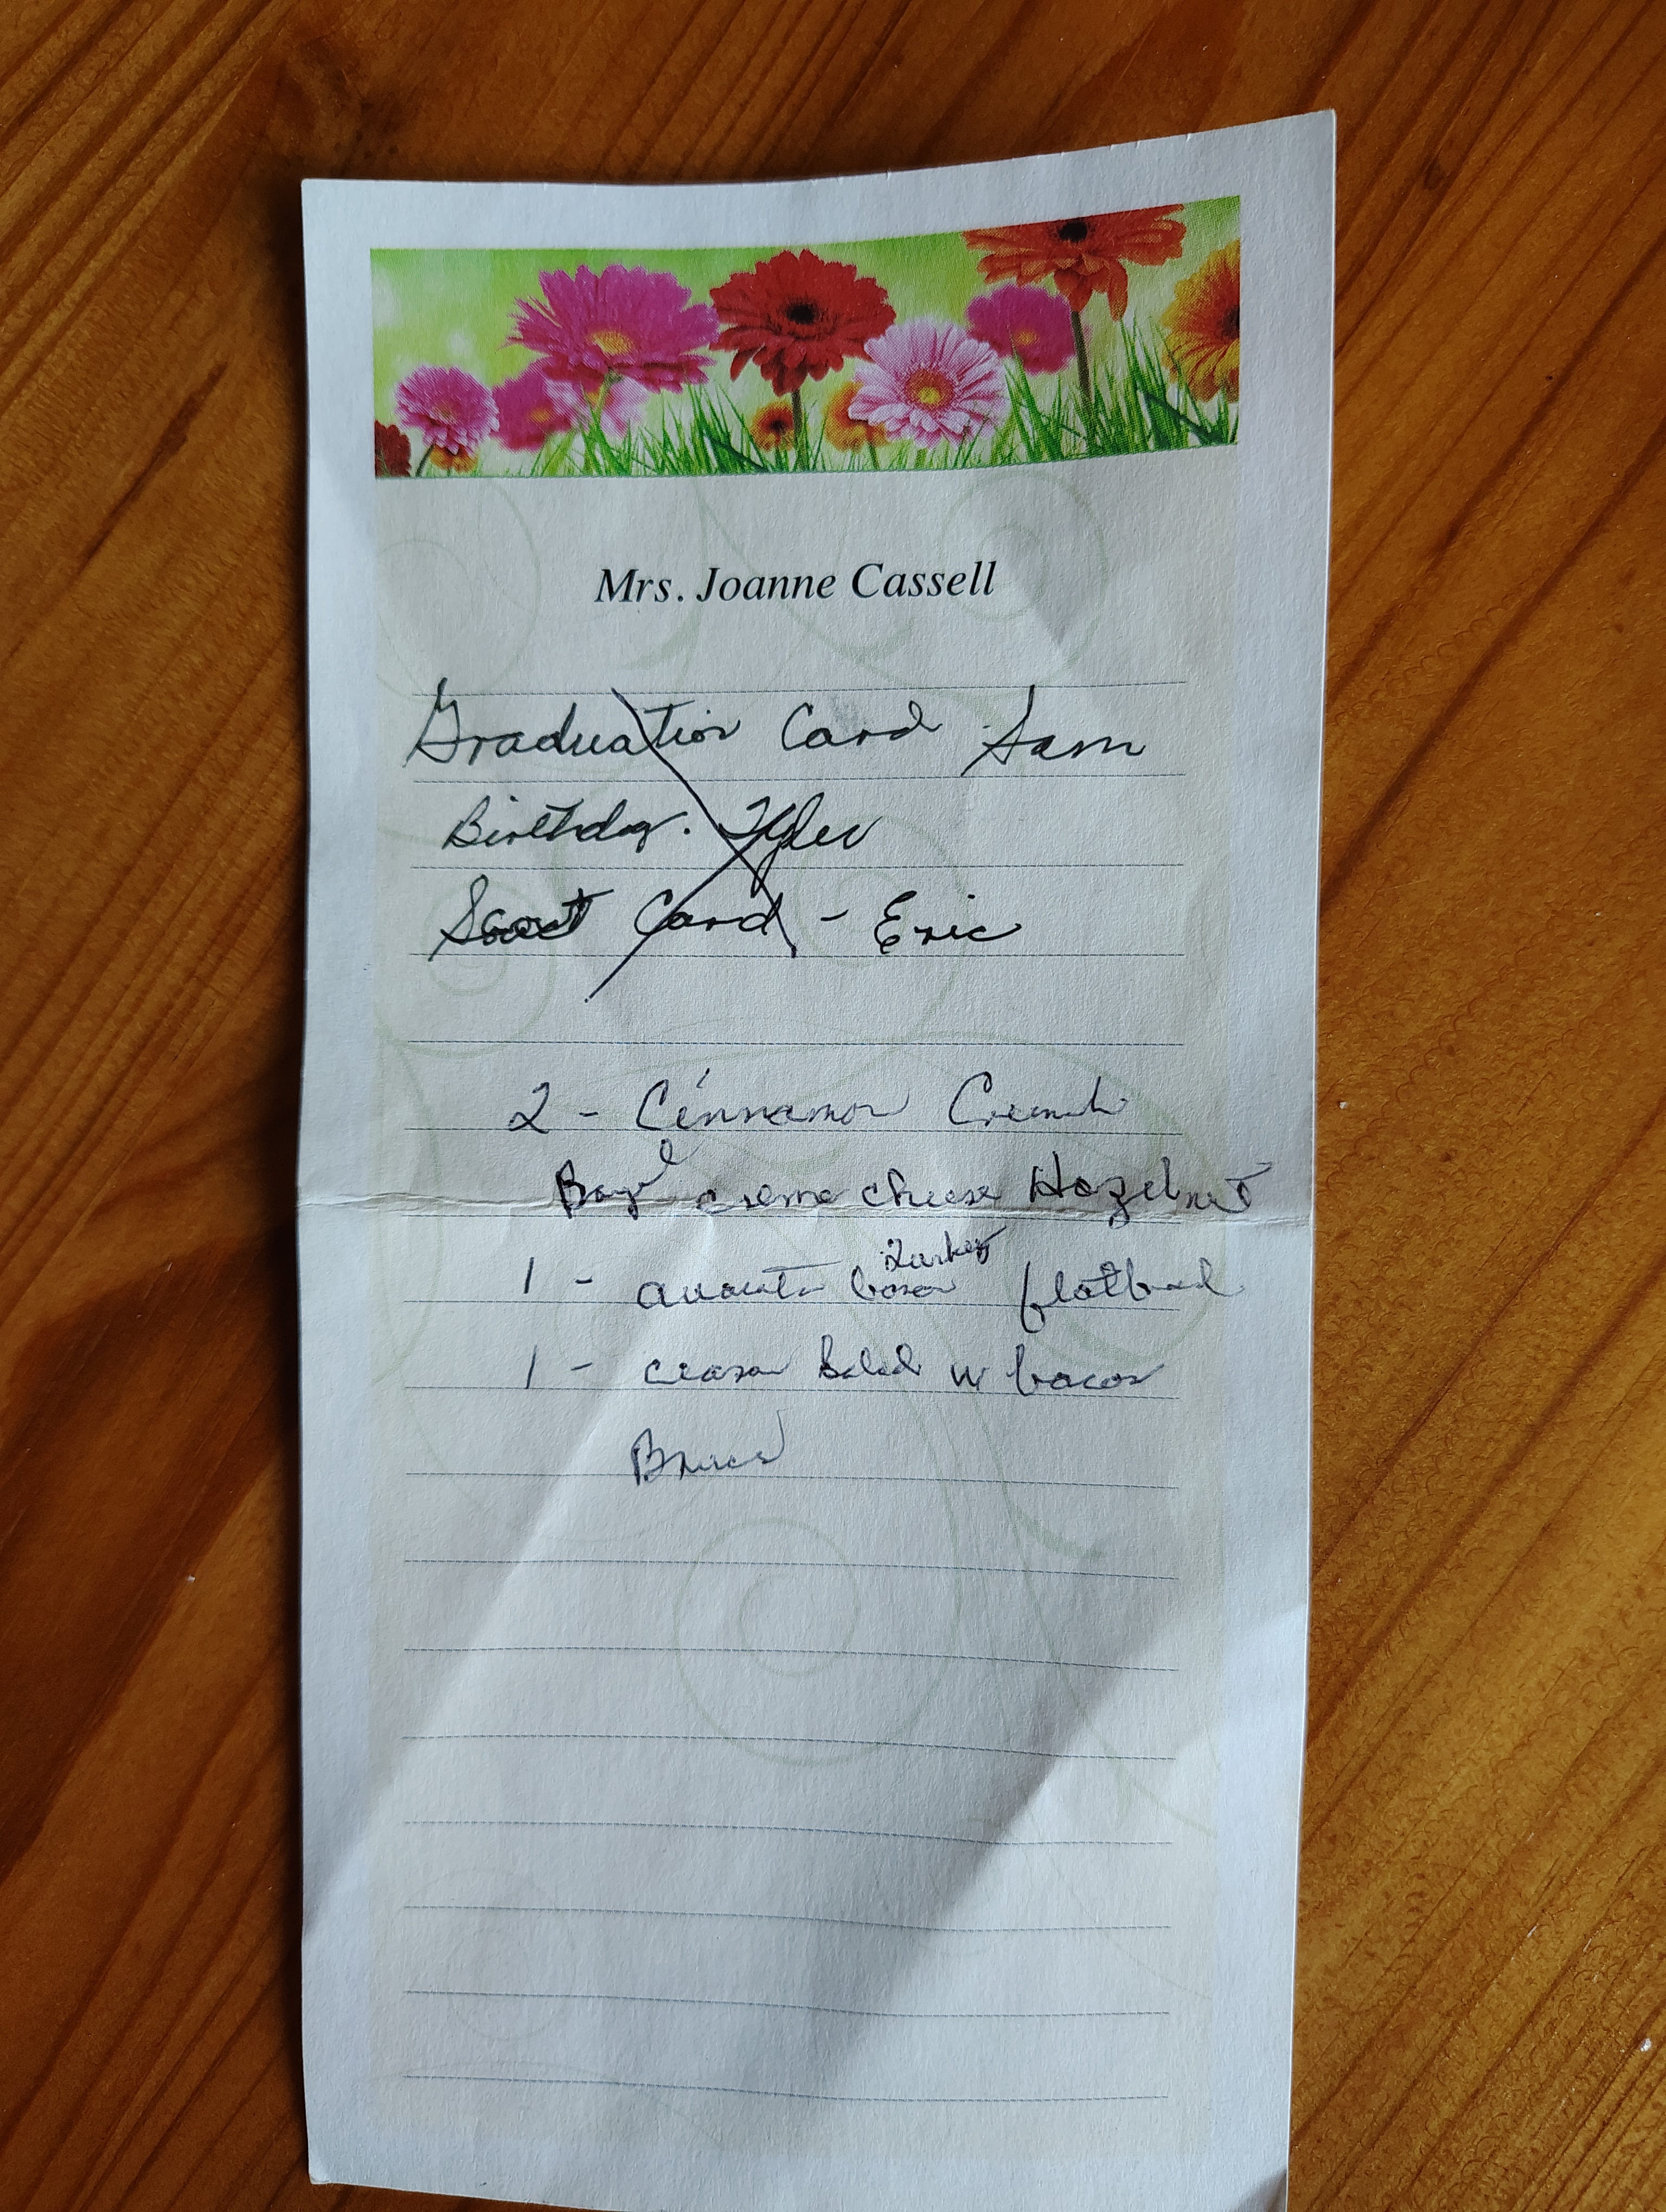 Mrs. Joanne Cassell
Graduation Card Sam
Birthday. Tyler
Scout Card - Eric
2 - Cinnamon Crunch
Bagel creme cheese Hazelnut
Turkey
1 - flatbread
1 - Salad w bacon